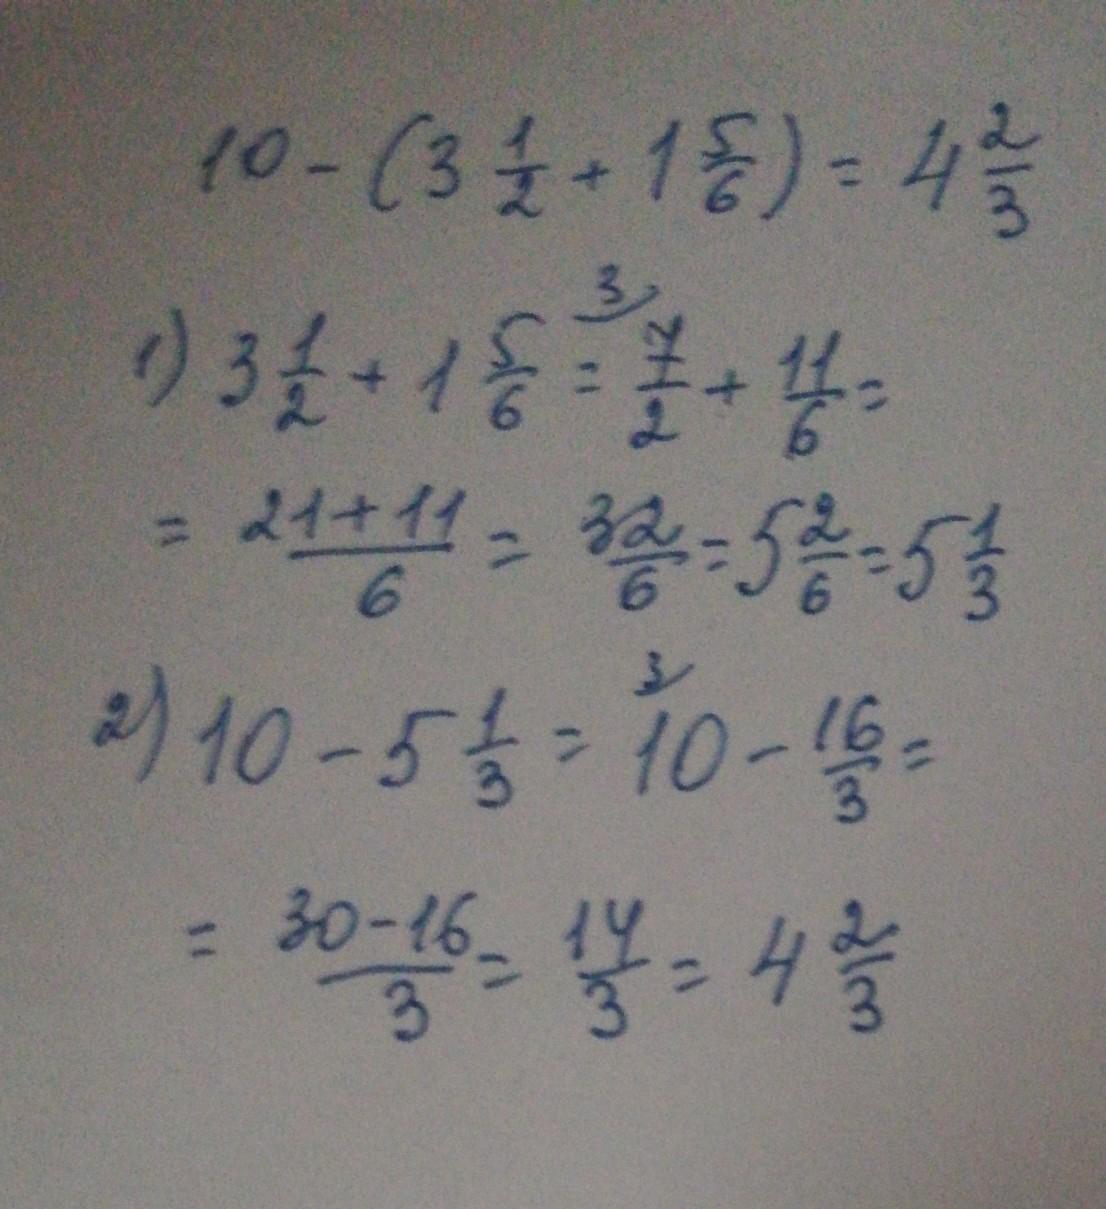 10 - (3 1/2 + 1 5/6) = 4 2/3
1) 3 1/2 + 1 5/6 = ³⁾7/2 + 11/6 =
= 21+11/6 = 32/6 = 5 2/6 = 5 1/3
2) 10 - 5 1/3 = ³⁾10 - 16/3 =
= 30-16/3 = 14/3 = 4 2/3